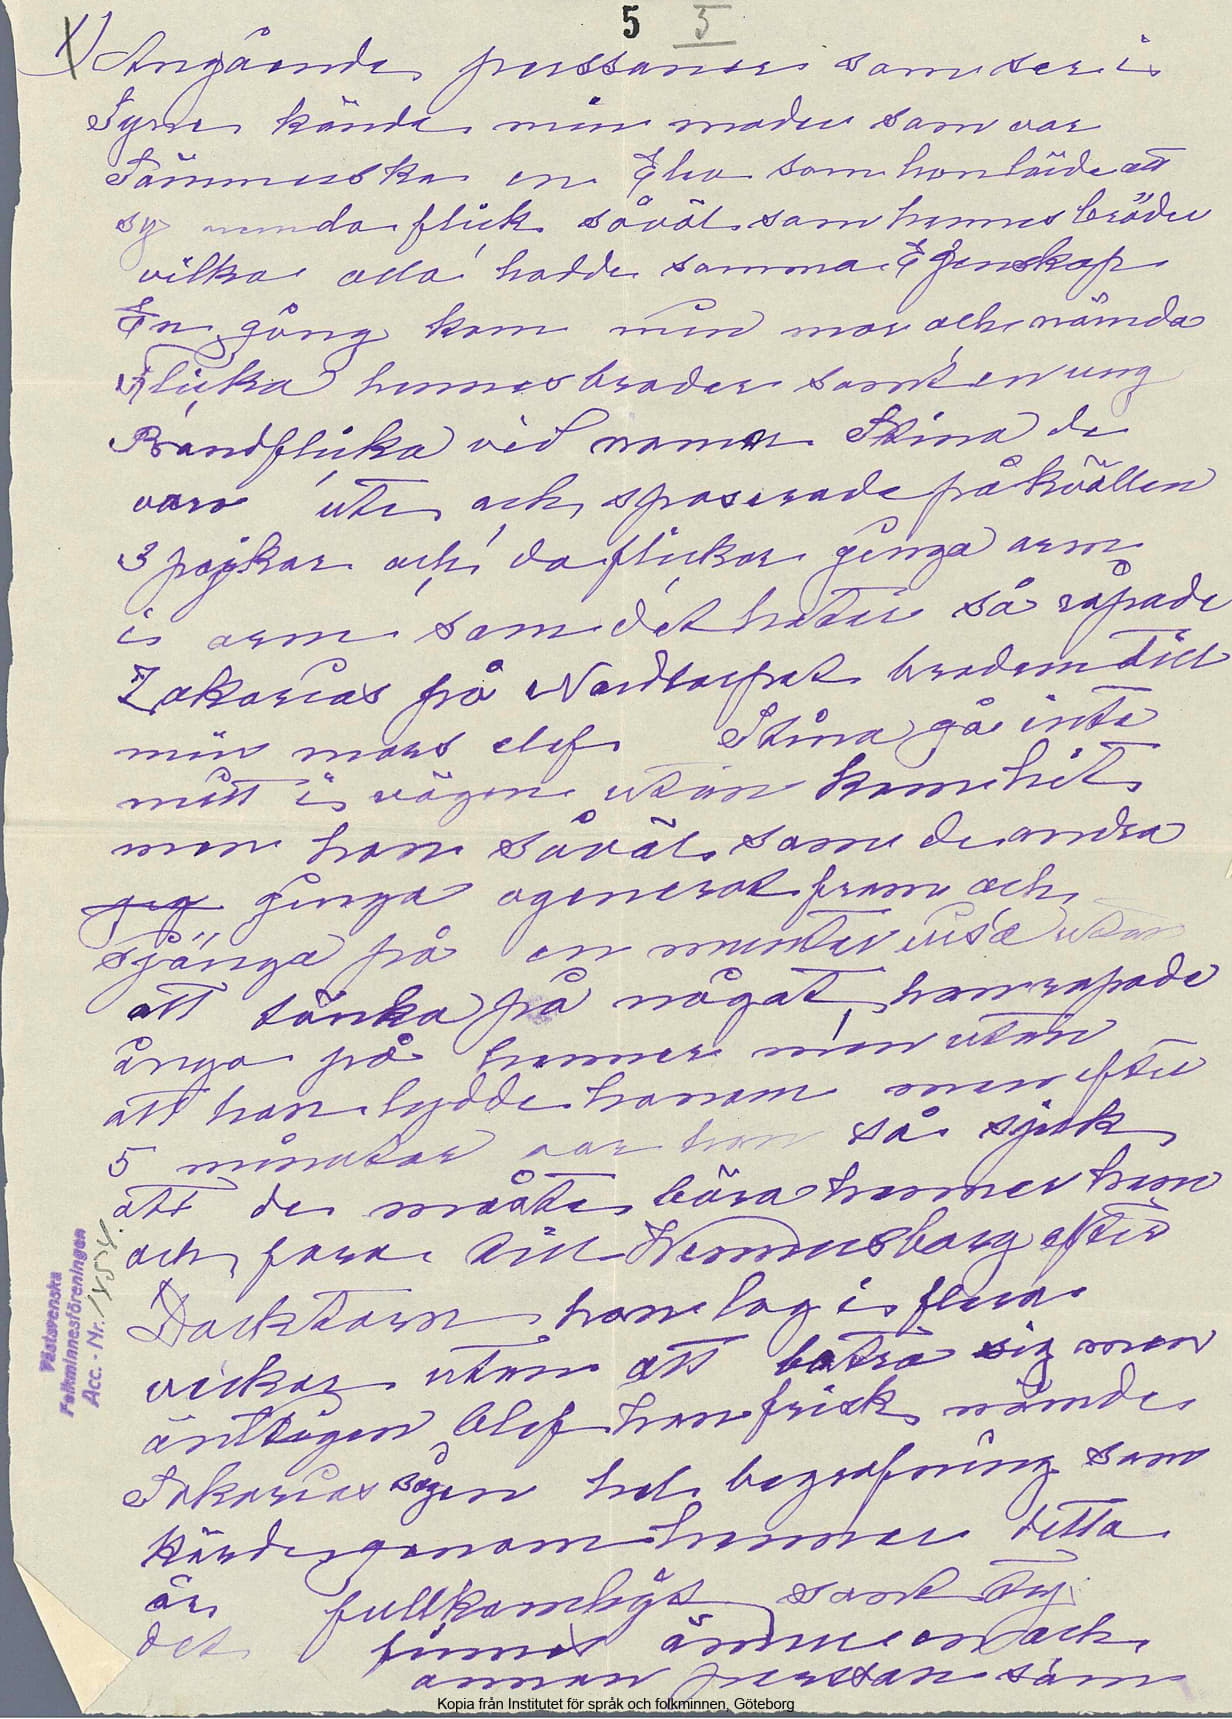 5 5
1) Angående perssoner som ser i
Syne kände min moder som var
Sömmerska en Elev som hon lärde att
sy da flick såväl som hennes bröder
vilka alla hadde samma Egenskap
En gång kom min mor och nämda
Flicka hennes broder samt en ung
Bondflicka vid namn Stina de
voro ute och sposerade på kvällen
3 pojkar och da flickor ginga arm
i arm som det heter så ropade
Zakarias på Nordtorpet brodern till
min mors elef Stina gå inte
mitt i vägen utan kom hit
men hon såväl som de andra
ginga ogenerat fram och
sjönga på en munter visa utan
att tänka på något han ropade
ånyo på henner men utan
att hon lydde honom men efter
5 minuter var hon så sjuk
att de måste bära henner hem
och fara till Wennersborg efter
Docktorn hon log i flera
veckor utan att bätra sig men
äntligen blef hon frisk nämde
Sakarias såg en hel begrafning som
körde genom henner detta
är fullkomligt sant ty
det finnes ännu en och
annan persson som
Västsvenska
Folkminnesföreningen
Acc. - Nr. 1454.
Kopia från Institutet för språk och folkminnen, Göteborg